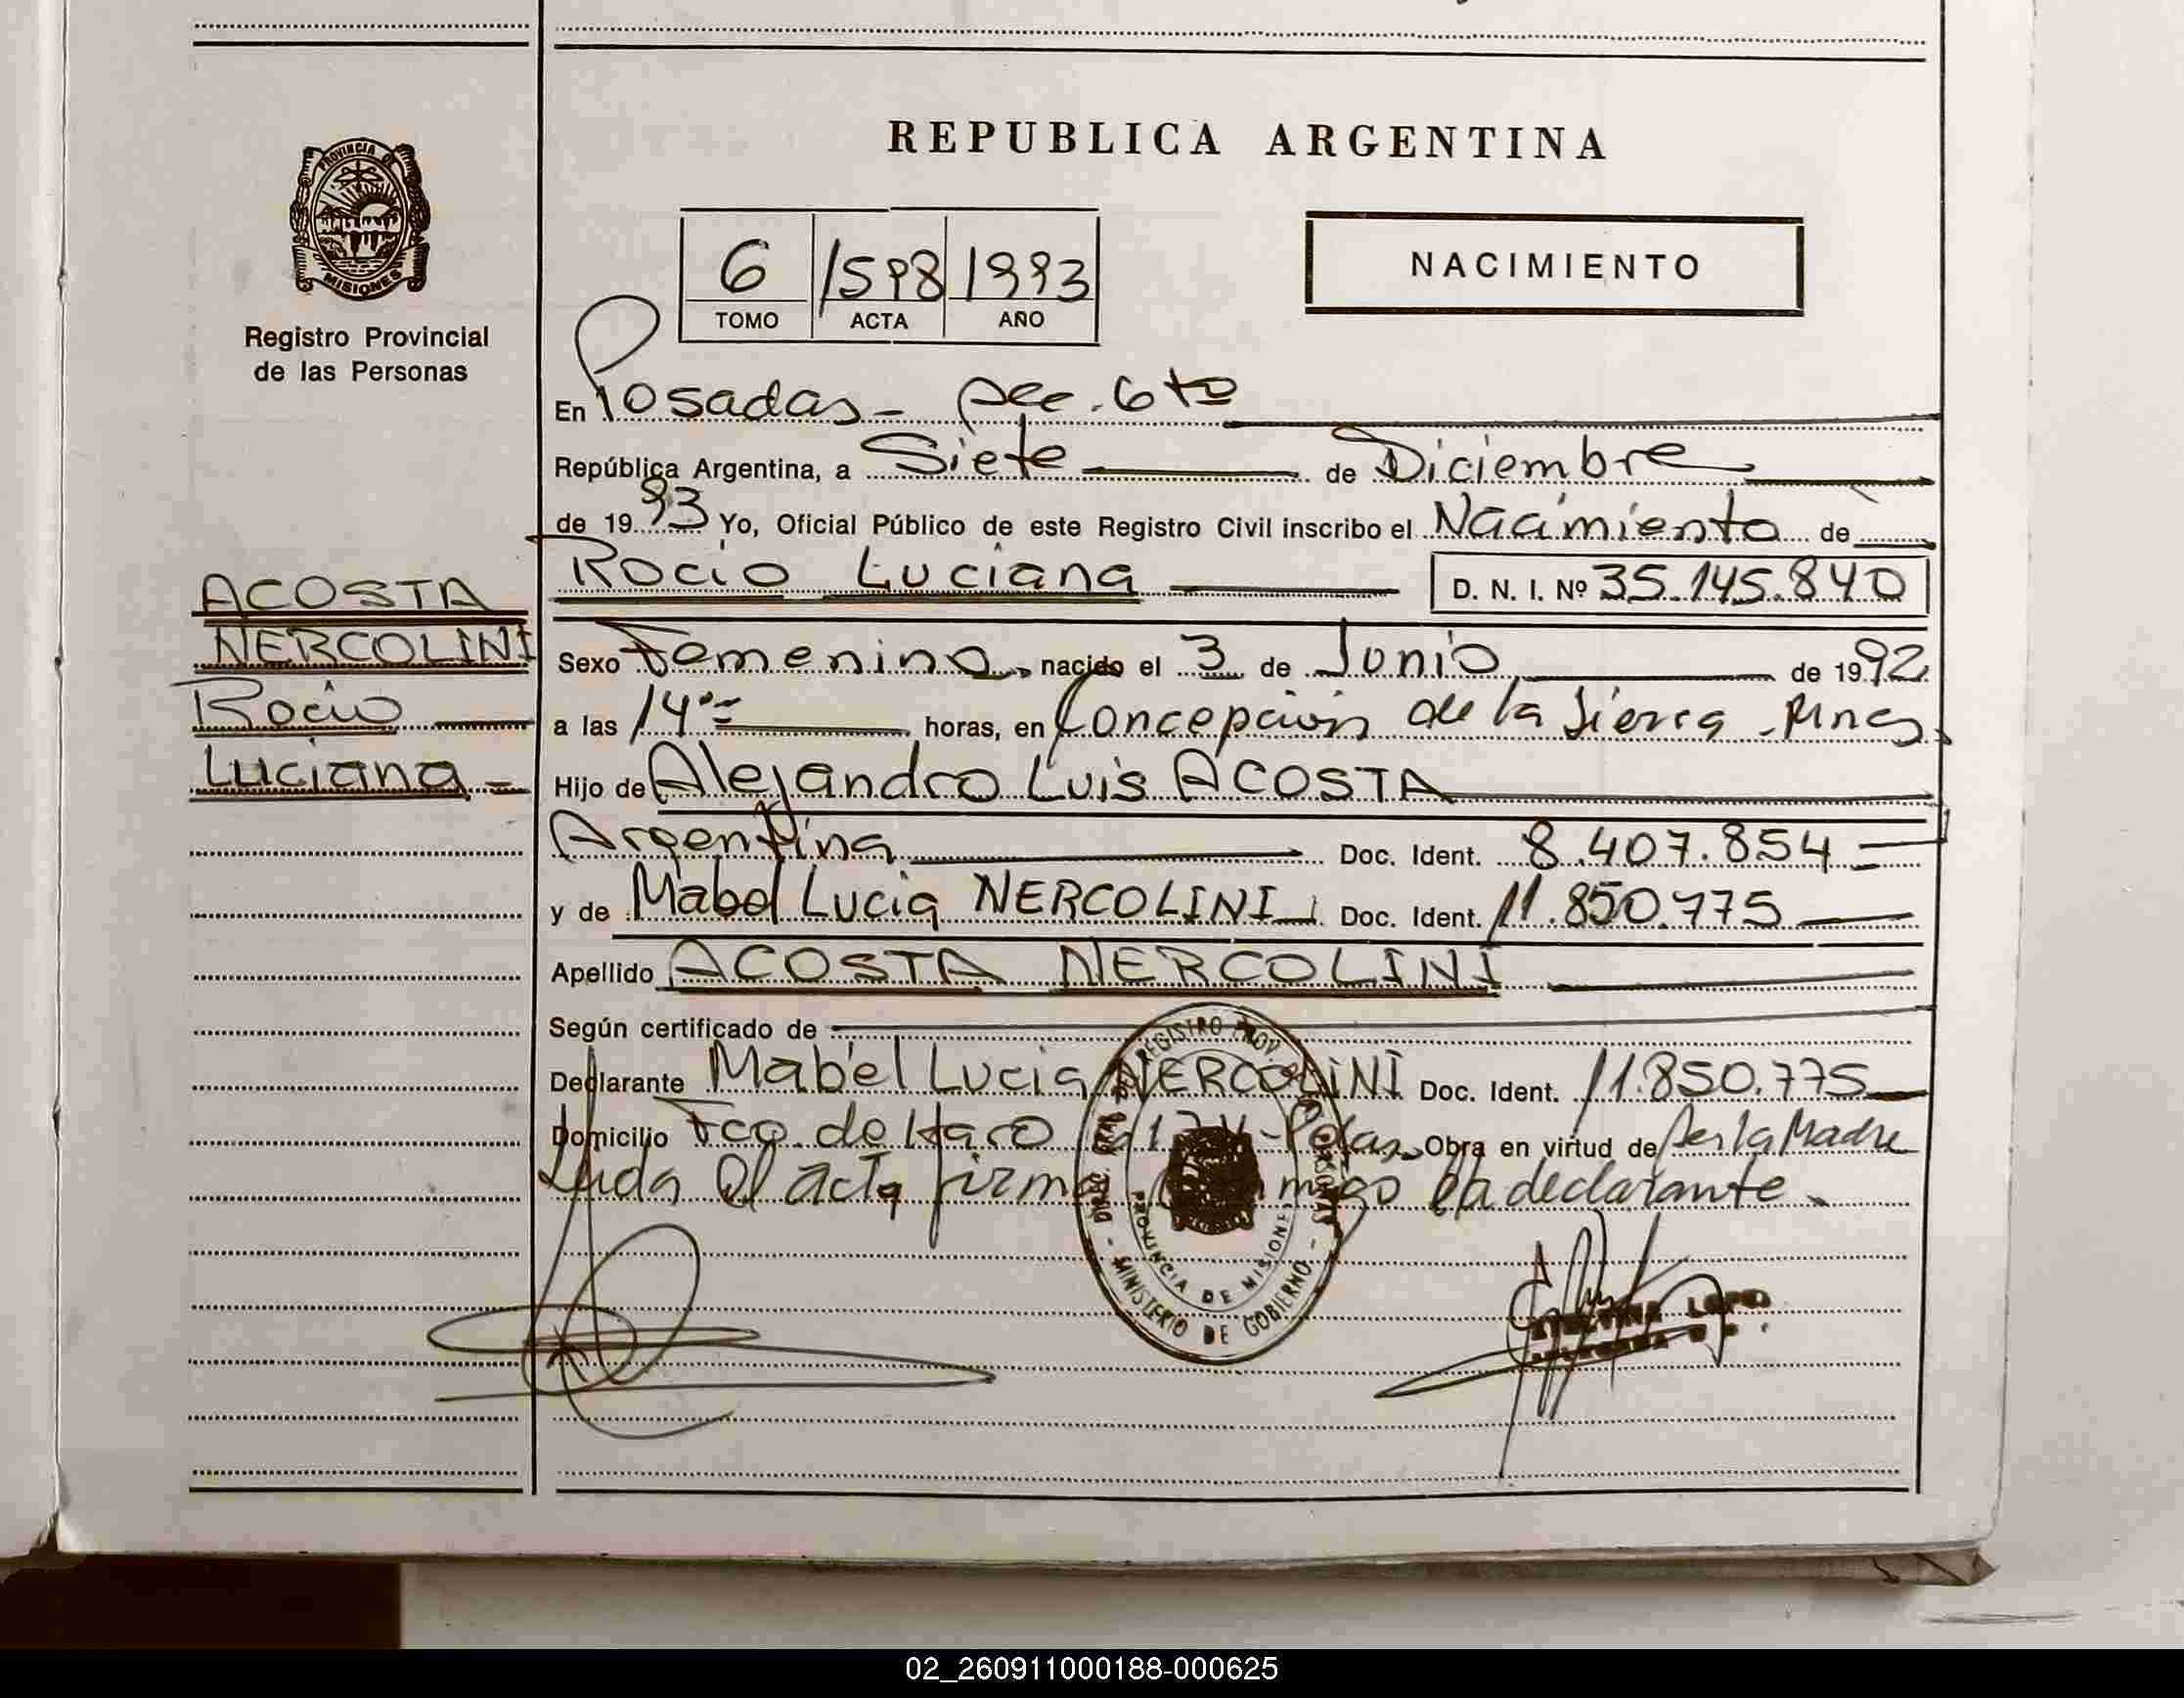 REPUBLICA ARGENTINA
PROVINCIA DE
MISIONES
Registro Provincial
de las Personas
6 1598 1993
TOMO ACTA AÑO
NACIMIENTO
En Posadas - 6to
República Argentina, a Siete de Diciembre
de 1993 Yo, Oficial Público de este Registro Civil inscribo el Nacimiento de
Rocio Luciana D. N. I. Nº 35.145.840
ACOSTA
NERCOLINI
Rocio
Luciana -
Sexo Femenino, nacido el 3 de Junio de 1992
a las 14 horas, en Concepción de la Sierra - Mnes
Hijo de Alejandro Luis ACOSTA
Argentina Doc. Ident. 8.407.854
y de Mabel Lucia NERCOLINI Doc. Ident. 11.850.775
Apellido ACOSTA NERCOLINI
Según certificado de
Declarante Mabel Lucia NERCOLINI Doc. Ident. 11.850.775
Domicilio Fco. de Haro Pdas. Obra en virtud de ser la Madre
Leida el acta firma la declarante.
REGISTRO PROV. DE LAS PERSONAS
MINISTERIO DE GOBIERNO
PROVINCIA DE MISIONES
02_260911000188-000625